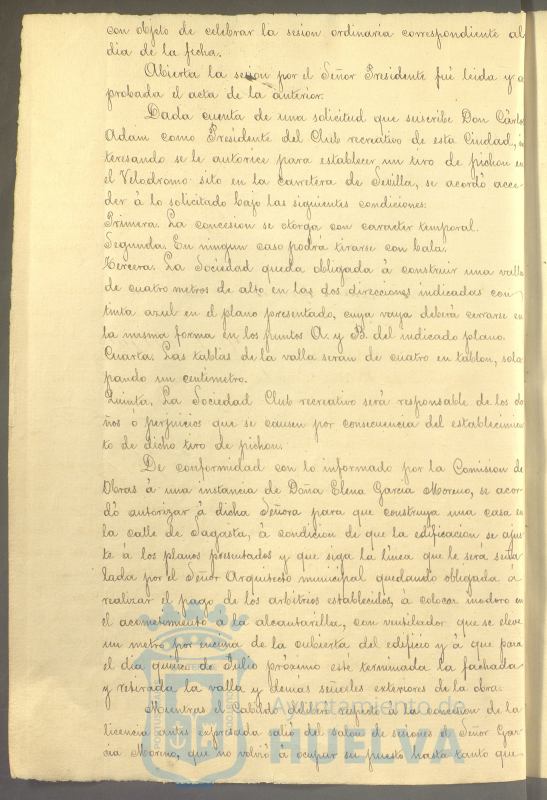 con objeto de celebrar la sesion ordinaria correspondiente al
dia de la fecha.
Abierta la sesion por el Señor Presidente fué leida y a
probada el acta de la anterior.
Dada cuenta de una solicitud que suscribe Don Carlos
Adam como Presidente del Club recreativo de esta Ciudad, in
teresando se le autorice para establecer un tiro de pichon en
el Velodromo sito en la carretera de Sevilla, se acordó acce
der á lo solicitado bajo las siguientes condiciones:
Primera. La concesion se otorga con caracter temporal.
Segunda. En ningun caso podrá tirarse con bala.
Tercera. La Sociedad queda obligada á construir una valla
de cuatro metros de alto en las dos direcciones indicadas con
tinta azul en el plano presentado, cuya vaya deberá cerrarse en
la misma forma en los puntos A. y B. del indicado plano.
Cuarta. Las tablas de la valla seran de cuatro en tablon, sola
pando un centimetro.
Quinta. La Sociedad Club recreativo será responsable de los da
ños ó perjuicios que se causen por consecuencia del establecimien
to de dicho tiro de pichon.
De conformidad con lo informado por la Comision de
Obras á una instancia de Doña Elena Garcia Moreno, se acor
dó autorizar á dicha Señora para que construya una casa en
la calle de Sagasta, á condicion de que la edificacion se ajus
te á los planos presentados y que siga la línea que le será seña
lada por el Señor Arquitecto municipal quedando obligada á
realizar el pago de los arbitrios establecidos, á colocar inodoro en
el acometimiento á la alcantarilla, con ventilador que se eleve
un metro por encima de la cubierta del edificio y á que para
el dia quince de Julio próximo este terminada la fachada
y retirada la valla y demás señales exteriores de la obra.
Mientras el Cabildo deliberó respecto á la concesion de la
licencia antes expresada salió del salon de sesiones el Señor Gar
cia Moreno, que no volvió a ocupar su puesto hasta tanto que
Ayuntamiento de
HUELVA